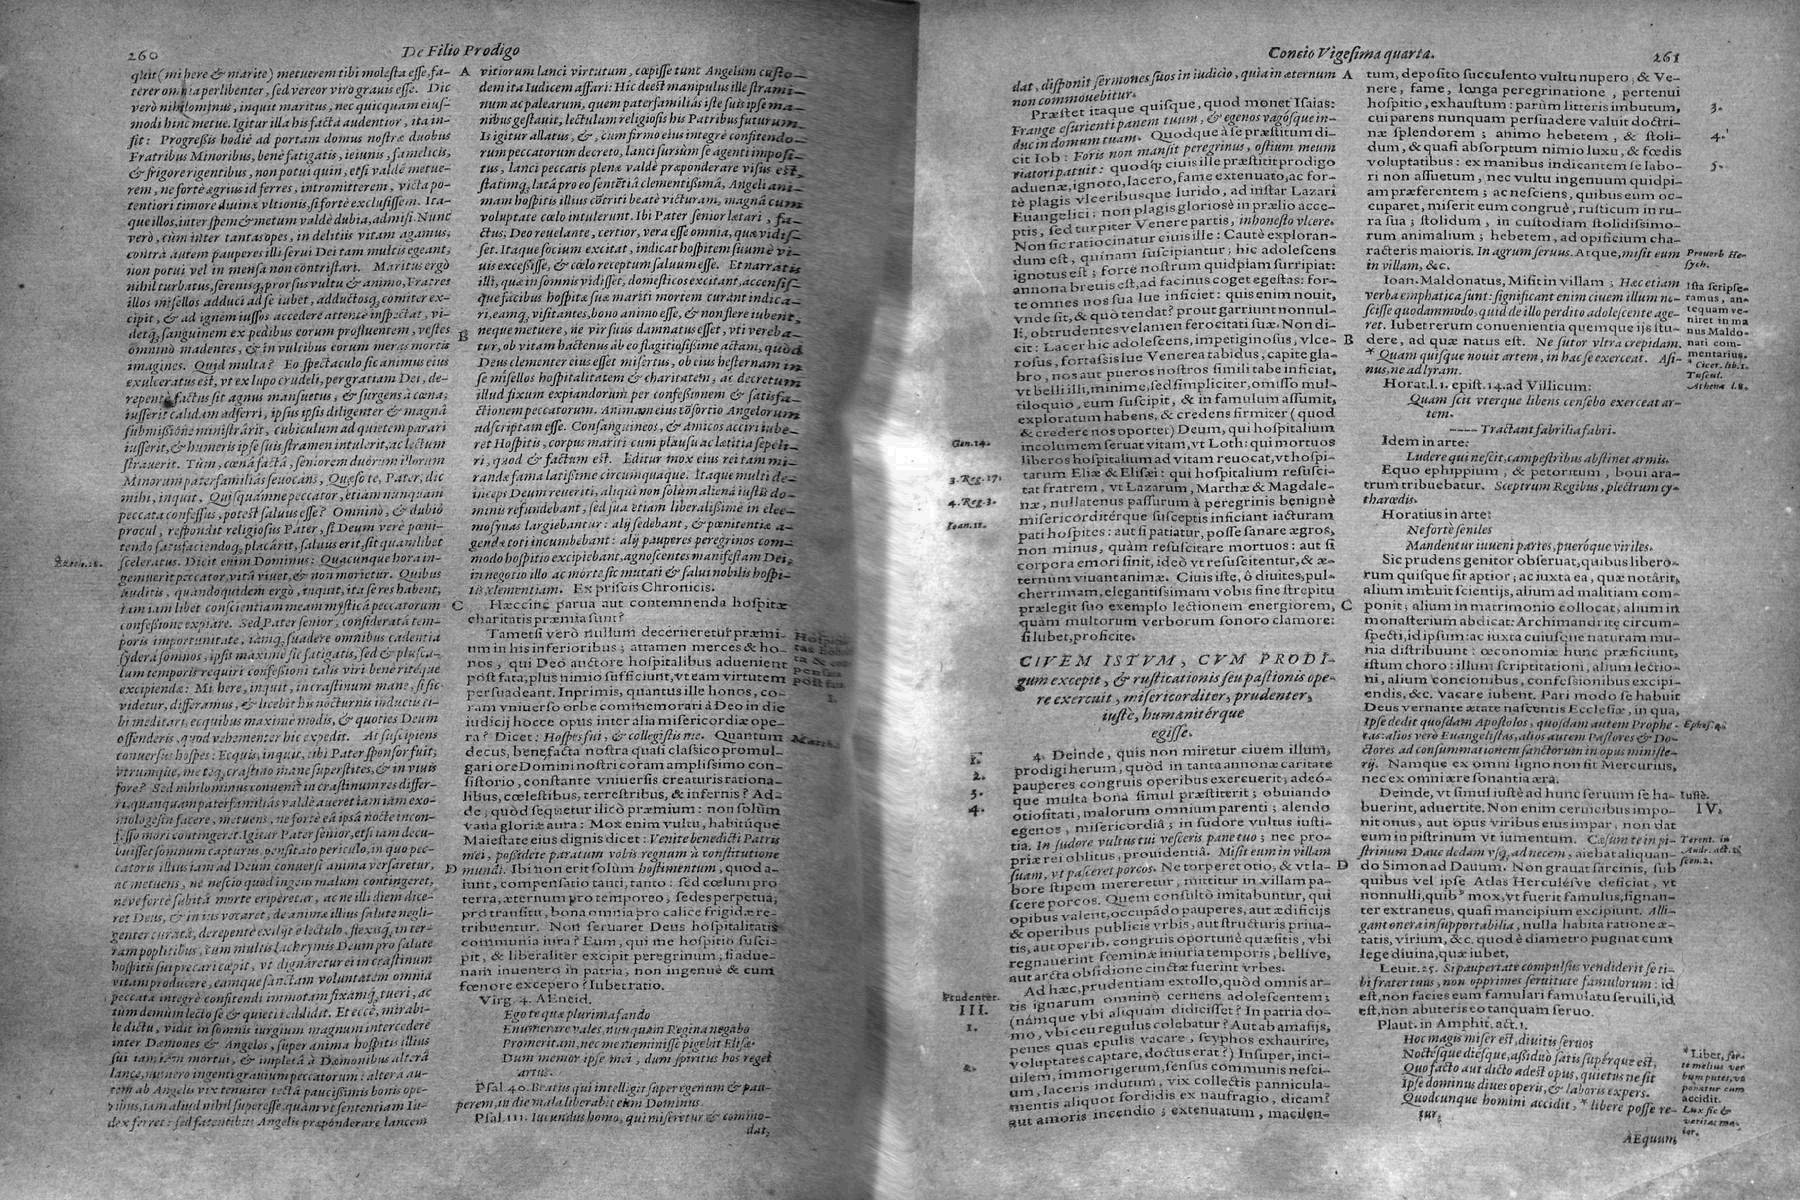 260
De Filio Prodigo
quit (mi here & marite) metuerem tibi molesta esse, fa-
terer omnia perlibenter, sed vereor viro grauis esse. Dic
verò nihilominus, inquit maritus, nec quicquam eius-
modi hinc metue. Igitur illa his factâ audentior, ita in-
fit: Progreßis hodiè ad portam domus nostræ duobus
Fratribus Minoribus, benè fatigatis, ieiunis, famelicis,
& frigore rigentibus, non potui quin, etsi valdè metue-
rem, ne fortè ægrius id ferres, intromitterem, victa po-
tentiori timore diuinæ vltionis, si fortè exclusissem. Ita-
que illos, inter spem & metum valdè dubia, admisi. Nunc
verò, cùm inter tantas opes, in delitiis vitam agamus,
contrà autem pauperes illi serui Dei tam multis egeant;
non potui vel in mensa non contristari. Maritus ergò
nihil turbatus, serenisq́; prorsus vultu & animo, Fratres
illos misellos adduci ad se iubet, adductosq́; comiter ex-
cipit, & ad ignem iussos accedere attentè inspectat, vi-
detq́; sanguinem ex pedibus eorum profluentem, vestes
omninò madentes, & in vultibus eorum meras mortis
imagines. Quid multa? Eo spectaculo sic animus eius
exulceratus est, vt ex lupo crudeli, per gratiam Dei, de-
repentè factus sit agnus mansuetus, & surgens à cœna;
iusserit calidam adferri, ipsus ipsis diligenter & magnâ
submißione ministrârit, cubiculum ad quietem parari
iusserit, & humeris ipse suis stramen intulerit, ac lectum
strauerit. Tùm, cœnâ factâ, seniorem duorum illorum
Minorum paterfamiliâs seuocans, Quæso te, Pater, dic
mihi, inquit, Quisquámne peccator, etiam nunquam
peccata confessus, potest saluus esse? Omninò, & dubio
procul, respondit religiosus Pater, si Deum verè pœni-
tendo satisfaciendoq́; placârit, saluus erit, sit quamlibet
sceleratus. Dicit enim Dominus: Quacunque hora in-
gemuerit peccator, vitâ viuet, & non morietur. Quibus
auditis, quandoquidem ergò, inquit, ita se res habent,
iam iam libet conscientiam meam mysticâ peccatorum
confeßione expiare. Sed Pater senior, consideratâ tem-
poris importunitate, iamq́; suadere omnibus cadentia
sydera somnos, ipsis maximè sic fatigatis, sed & plusca-
lum temporis requiri confeßioni talis viri benè ritéque
excipiendæ: Mi here, inquit, in crastinum manè, si sic
videtur, differamus, & licebit his nocturnis induciis ti-
bi meditari, ecquibus maximè modis, & quoties Deum
offenderis, quod vehementer hîc expedit. At suscipiens
conuersus hospes: Ecquis, inquit, tibi Pater sponsor fuit;
vtrumque, me teq́; crastino manè superstites, & in viuis
fore? Sed nihilominus conuenit in crastinum res differ-
ri, quanquam paterfamiliâs valdè aueret iam iam exo-
mologesin facere, metuens, ne fortè eâ ipsâ nocte incon-
fesso mori contingeret. Igitur Pater senior, etsi iam decu-
buisset somnum capturus, pensitato periculo, in quo pec-
catoris illius iam ad Deum conuersi anima versaretur,
ac metuens, ne nescio quod ingens malum contingeret,
neve fortè subitâ morte eriperetur, ac ne illi diem dice-
ret Deus, & in ius vocaret, de anima illius salute negli-
genter curatâ, derepentè exilijt è lectulo, flexisq́; in ter-
ram poplitibus, cum multis lachrymis Deum pro salute
hospitis sui precari cœpit, vt dignâretur ei in crastinum
vitam producere, eamque sanctam voluntatem omnia
peccata integrè confitendi immotam fixamq́; tueri, ac
tùm demùm lecto se & quieti reddidit. Et eccè, mirabi-
le dictu, vidit in somnis iurgium magnum intercedere
inter Dæmones & Angelos, super anima hospitis illius
sui iam iam mortui, & impletâ à Dæmonibus alterâ
lance, numero ingenti grauique peccatorum: altera au-
tem ab Angelis vix tenuiter tectâ paucissimis bonis ope-
ribus, iam aliud nihil superesse, quàm vt sententiam Iu-
dex ferret: sed fatentibus Angelis præponderare lancem
A
B
C
D
vitiorum lanci virtutum, cœpisse tunc Angelum custo-
dem ita Iudicem affari: Hic deest manipulus ille strami-
num ac palearum, quem paterfamiliâs iste suis ipse ma-
nibus gestauit, lectulum religiosis his Patribus futurum.
Is igitur allatus, &, cum firmo eius integrè confitendo-
rum peccatorum decreto, lanci sursùm se agenti imposi-
tus, lanci peccatis plenæ valdè præponderare visus est,
statimq́; latâ pro eo sententiâ clementissimâ, Angeli ani-
mam hospitis illius cōtriti beatè victuram, magnâ cum
voluptate cœlo intulerunt. Ibi Pater senior lætari, fa-
ctus, Deo reuelante, certior, vera esse omnia, quæ vidis-
set. Itaque socium excitat, indicat hospitem suum è vi-
uis exceßisse, & cœlo receptum saluum esse. Et narratis
illi, quæ in somnis vidisset, domesticos excitant, accensis-
que facibus hospitæ suæ mariti mortem curant indica-
ri, eamq́; visitantes, bono animo esse, & non flere iubent,
neque metuere, ne vir suus damnatus esset, vti vereba-
tur, ob vitam hactenus ab eo flagitiosißimè actam, quòd
Deus clementer eius esset misertus, ob eius hesternam in
se misellos hospitalitatem & charitatem, ac decretum
illud fixum expiandorum per confeßionem & satisfa-
ctionem peccatorum. Animam eius cōsortio Angelorum
adscriptam esse. Consanguineos, & amicos acciri iube-
ret Hospitis, corpus mariti cum plausu ac lætitia sepeli-
ri, quod & factum est. Editur mox eius rei tam mi-
randæ fama latissimè circumquaque. Itaque multi de-
incepi Deum reueriti, aliqui non solùm aliena iustis do-
minis refundebant, sed sua etiam liberalissimè in elee-
mosynas largiebantur: alij sedebant, & pœnitentiæ a-
gendæ toti incumbebant: alij pauperes peregrinos com-
modo hospitio excipiebant, agnoscentes manifestam Dei,
in negotio illo ac morte sic mutati & salui nobilis hospi-
tis, clementiam. Ex priscis Chronicis.
Hæccine parua aut contemnenda hospitæ
charitatis præmia sunt?
Tametsi verò nullum decerneretur præmi-
um in his inferioribus; attamen merces & ho-
nos, qui Deo auctore hospitalibus aduenient
pòst fata, plus nimio sufficiunt, vt eam virtutem
persuadeant. Inprimis, quantus ille honos, co-
ram vniuerso orbe commemorari à Deo in die
iudicij hocce opus inter alia misericordiæ ope-
ra? Dicet: Hospes fui, & collegistis me. Quantum
decus, benefacta nostra quasi classico promul-
gari ore Domini nostri coram amplissimo con-
sistorio, constante vniuersis creaturis rationa-
libus, cœlestibus, terrestribus, & infernis? Ad-
de, quòd sequetur ilicò præmium: non solùm
vana gloriæ aura: Mox enim vultu, habitúque
Maiestate eius dignis dicet: Venite benedicti Patris
mei, poßidete paratum vobis regnum à constitutione
mundi. Ibi non erit solùm hostimentum, quod a-
iunt, compensatio tanti, tanto: sed cœlum pro
terra, æternum pro temporeo; sedes perpetua;
pro transitu, bona omnia pro calice frigidæ re-
tribuentur. Non seruaret Deus hospitalitatis
communia iura? Eum, qui me hospitio susci-
pit, & liberaliter excipit peregrinum, si adue-
nam inuenero in patria, non ingenuè & cum
fœnore excepero? Iubet ratio.
Virg. 4. AEneid.
Ego te quæ plurima fando
Enumerare vales, nunquam Regina negabo
Promeritam, nec me meminisse pigebit Elisæ.
Dum memor ipse mei, dum spiritus hos reget
artus.
Psal. 40. Beatus qui intelligit super egenum & pau-
perem, in die mala liberabit eum Dominus.
Psal. 111. Iucundus homo, qui miseretur & commo-
dat,
Concio Vigesima quarta.
261
dat, disponit sermones suos in iudicio, quia in æternum
non commouebitur.
Præstet itaque quisque, quod monet Isaias:
Frange esurienti panem tuum, & egenos vagósque in-
duc in domum tuam. Quodque à se præstitum di-
cit Iob: Foris non mansit peregrinus, ostium meum
viatori patuit: quodq́; ciuis ille præstitit prodigo
aduenæ, ignoto, lacero, fame extenuato, ac for-
tè plagis vlceribusque lurido, ad instar Lazari
Euangelici: non plagis gloriosè in prælio acce-
ptis, sed turpiter Venere partis, inhonesto vlcere.
Non sic ratiocinatur ciuis ille: Cautè exploran-
dum est, quinam suscipiantur; hic adolescens
ignotus est; fortè nostrum quidpiam surripiat:
annona breuis est, ad facinus coget egestas: for-
te omnes nos sua lue inficiet: quis enim nouit,
vnde sit, & quò tendat? prout garriunt nonnul-
li, obtrudentes velamen ferocitati suæ. Non di-
cit: Lacer hic adolescens, impetiginosus, vlce-
rosus, fortassis lue Venerea tabidus, capite gla-
bro, nos aut pueros nostros simili tabe inficiat,
vt belli illi, minimè, sed simpliciter, omisso mul-
tiloquio, eum suscipit, & in famulum assumit,
exploratum habens, & credens firmiter (quod
& credere nos oportet) Deum, qui hospitalium
incolumem seruat vitam, vt Loth: qui mortuos
liberos hospitalium ad vitam reuocat, vt hospi-
tarum Eliæ & Elisæi: qui hospitalium resusci-
tat fratrem, vt Lazarum, Marthæ & Magdale-
næ, nullatenus passurum à peregrinis benignè
misericorditérque susceptis inficiant iacturam
pati hospites: aut si patiatur, posse sanare ægros,
non minus, quàm resuscitare mortuos: aut si
corpora emori sinit, ideò vt resuscitentur, & æ-
ternùm viuant animæ. Ciuis iste, ô diuites, pul-
cherrimam, elegantissimam vobis sine strepitu
prælegit suo exemplo lectionem energiorem,
quàm multorum verborum sonoro clamore:
si lubet, proficite.
CIVEM ISTVM, CVM PRODI-
gum excepit, & rusticationis seu pastionis ope-
re exercuit, misericorditer, prudenter,
iustè, humanitérque
egisse.
4. Deinde, quis non miretur ciuem illum,
prodigi herum, quòd in tanta annonæ caritate
pauperes congruis operibus exercuerit; adeó-
que multa bona simul præstiterit; obuiando
otiositati, malorum omnium parenti; alendo
egenos, misericordiâ; in sudore vultus iusti-
tia. In sudore vultus tui vesceris pane tuo; nec pro-
priæ rei oblitus, prouidentiâ. Misit eum in villam
suam, vt pasceret porcos. Ne torperet otio, & vt la-
bore stipem mereretur, mittitur in villam pa-
scere porcos. Quem consultò imitabuntur, qui
opibus valent, occupādo pauperes, aut ædificijs
& operibus publicis vrbis, aut structuris priua-
tis, aut operib. congruis oportunè quæsitis, vbi
regnauerint fœminæ iniuria temporis, bellive,
aut arcta obsidione cinctæ fuerint vrbes.
Ad hæc, prudentiam extollo, quòd omnis ar-
tis ignarum omninò cernens adolescentem;
(námque vbi aliquam didicisset? In patria do-
mo, vbi ceu regulus colebatur? Aut ab amasijs,
penes quas epulis vacare, scyphos exhaurire,
voluptates captare, doctus erat?) Insuper, inci-
uilem, immorigerum, sensus communis nesci-
um, laceris indutum, vix collectis pannicula-
mentis aliquot sordidis ex naufragio, dicam?
aut amoris incendio; extenuatum, macilen-
A
B
C
D
tum, deposito succulento vultu nupero; & Ve-
nere, fame, longa peregrinatione, pertenui
hospitio, exhaustum: parùm litteris imbutum,
cui parens nunquam persuadere valuit doctri-
næ splendorem; animo hebetem, & stoli-
dum, & quasi absorptum nimio luxu, & fœdis
voluptatibus: ex manibus indicantem se labo-
ri non assuetum, nec vultu ingenuum quidpi-
am præferentem; ac nesciens, quibus eum oc-
cuparet, miserit eum congruè, rusticum in ru-
ra sua; stolidum, in custodiam stolidissimo-
rum animalium; hebetem, ad opificium cha-
racteris maioris. In agrum seruus. Atque, misit eum
in villam, &c.
Ioan. Maldonatus, Misit in villam; Hæc etiam
verba emphatica sunt: significant enim ciuem illum ne-
scisse quodammodo, quid de illo perdito adolescente age-
ret. Iubet rerum conuenientia quemque ijs stu-
dere, ad quæ natus est. Ne sutor vltra crepidam.
* Quam quisque nouit artem, in hac se exerceat. Asi-
nus, ne ad lyram.
Horat. l. 1. epist. 14. ad Villicum:
Quam scit vterque libens censebo exerceat ar-
tem.
---- Tractant fabrilia fabri.
Idem in arte:
Ludere qui nescit, campestribus abstinet armis.
Equo ephippium, & petoritum, boui ara-
trum tribuebatur. Sceptrum Regibus, plectrum cy-
tharœdis.
Horatius in arte:
Ne fortè seniles
Mandentur iuueni partes, pueróque viriles.
Sic prudens genitor obseruat, quibus libero-
rum quisque sit aptior; ac iuxta ea, quæ notârit,
alium imbuit scientijs, alium ad malitiam com-
ponit; alium in matrimonio collocat, alium in
monasterium abdicat: Archimandritæ circum-
specti, id ipsum: ac iuxta cuiusque naturam mu-
nia distribuunt: œconomiæ hunc præficiunt,
istum choro: illum scriptitationi, alium lectio-
ni, alium concionibus, confessionibus excipi-
endis, &c. vacare iubent. Pari modo se habuit
Deus vernante ætate nascentis Ecclesiæ, in qua,
Ipse dedit quosdam Apostolos, quosdam autem Prophe-
tas: alios verò Euangelistas, alios autem Pastores & Do-
ctores ad consummationem sanctorum in opus ministe-
rij. Namque ex omni ligno non fit Mercurius,
nec ex omni ære sonantia æra.
Deinde, vt simul iustè ad hunc seruum se ha-
buerint, aduertite. Non enim ceruicibus impo-
nit onus, aut opus viribus eius impar, non dat
eum in pistrinum vt iumentum. Cæsum te in pi-
strinum Daue dedam vsq́; ad necem, aiebat aliquan-
do Simo ad Dauum. Non grauat sarcinis, sub
quibus vel ipse Atlas Herculésve deficiat, vt
nonnulli, quib* mox, vt fuerit famulus, signan-
ter extraneus, quasi mancipium excipiunt. Alli-
gant onera insupportabilia, nulla habita ratione æ-
tatis, virium, &c. quod è diametro pugnat cum
lege diuina, quæ iubet,
Leuit. 25. Si paupertate compulsus vendiderit se ti-
bi frater tuus, non opprimes seruitute famulorum: id
est, non facies eum famulari famulatu seruili, id
est, non abuteris eo tanquam seruo.
Plaut. in Amphit. act. 1.
Hoc magis miser est, diuitis seruos
Noctésque diésque, aßiduò satis supérque est,
Quo facto aut dicto adest opus, quietus ne sit
Ipse dominus diues operis, & laboris expers.
Quodcunque homini accidit, * libere posse re-
tur,
AEquum
Gen. 14.
3. Reg. 17.
4. Reg. 3.
Ioan. 11.
1.
2.
3.
4.
Prudenter.
III.
1.
2.
3.
4.
5.
Prouerb He-
sych.
Ista scripse-
ramus, an-
tequam ve-
niret in ma
nus Maldo-
nati com-
mentarius.
* Cicer. lib. 1.
Tuscul.
Athena l. 8.
Ephes. 4.
Iustè.
IV.
Terent. in
Andr. act. 1.
scen. 2.
* Liber, for-
te melius ver
bum putes, vt
ponatur cum
accidit.
Lux sic &
veritas ma-